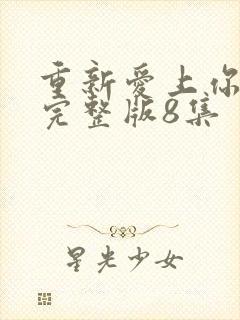 重新爱上你
完整版8集
星光少女